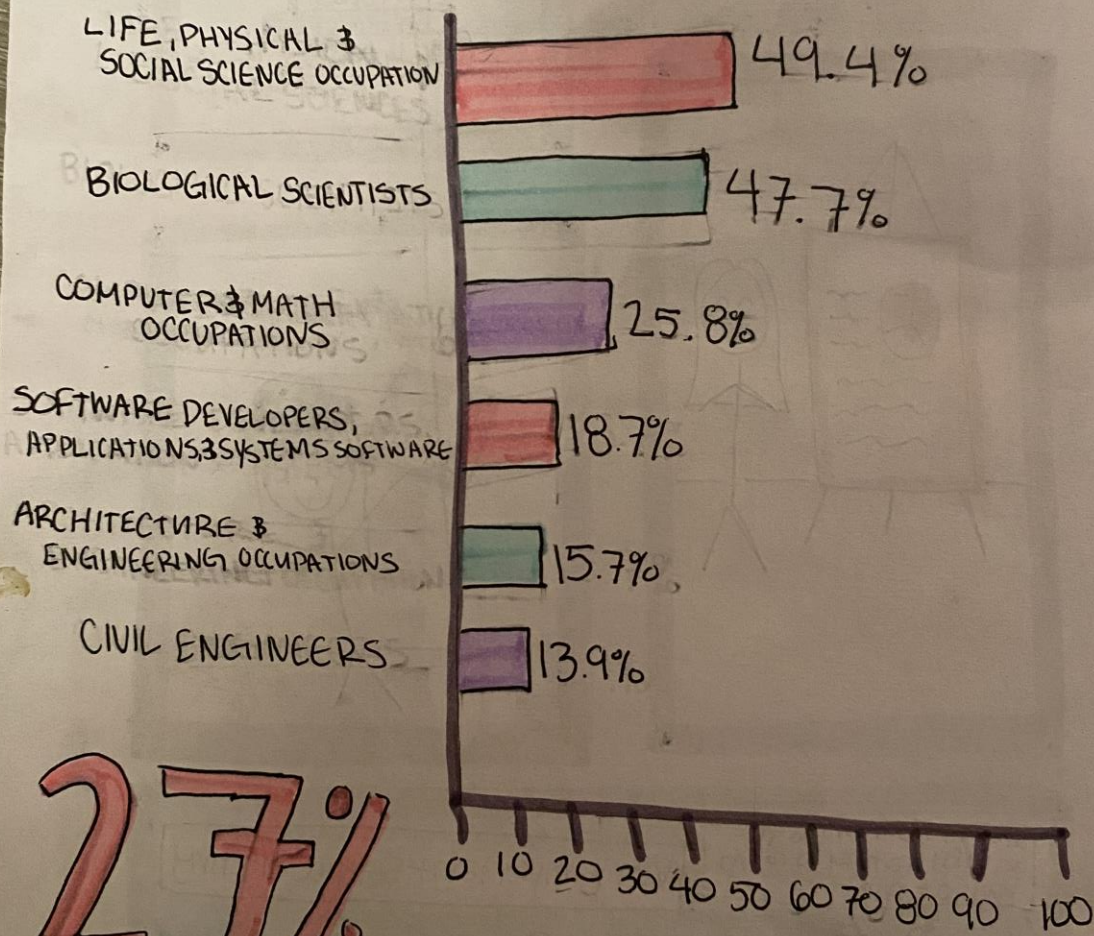 LIFE, PHYSICAL &
SOCIAL SCIENCE OCCUPATION
49.4%
BIOLOGICAL SCIENTISTS
47.7%
COMPUTER & MATH
OCCUPATIONS
25.8%
SOFTWARE DEVELOPERS,
APPLICATIONS, & SYSTEMS SOFTWARE
18.7%
ARCHITECTURE &
ENGINEERING OCCUPATIONS
15.7%
CIVIL ENGINEERS
13.9%
27%
0 10 20 30 40 50 60 70 80 90 100